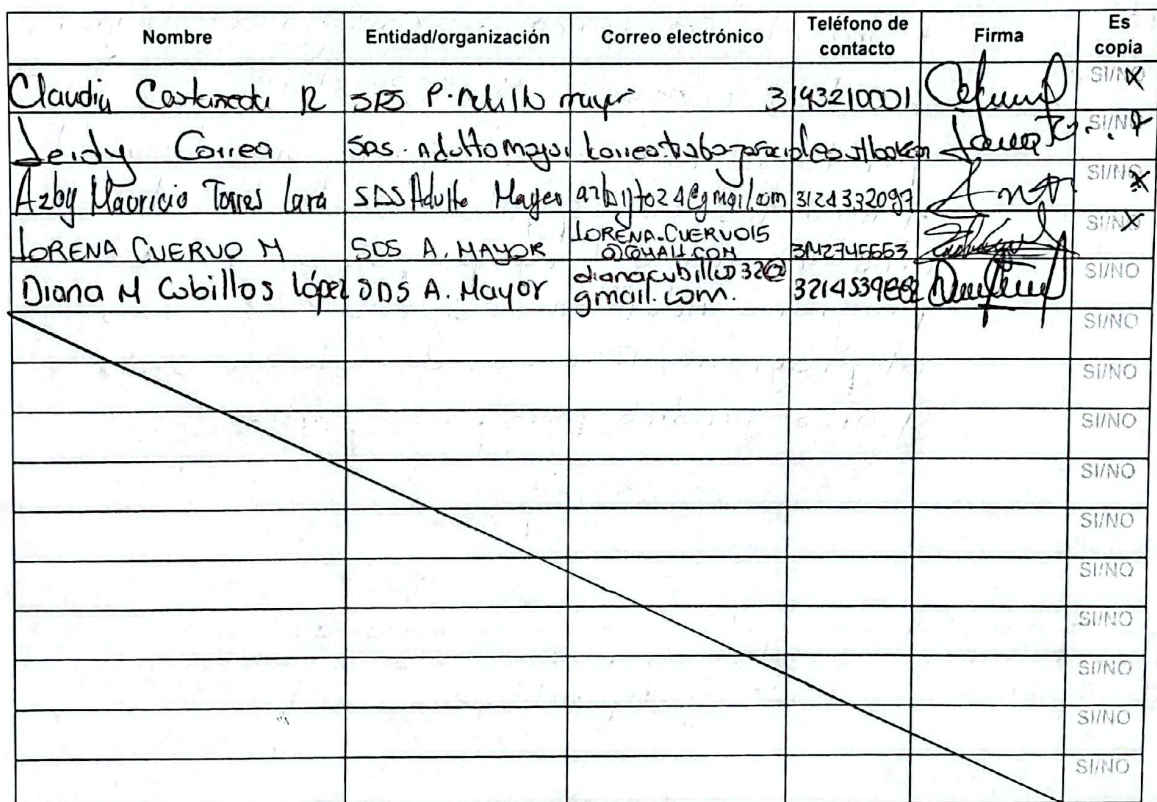 Nombre Entidad/organización Correo electrónico Teléfono de contacto Firma Es copia
Claudia Castaneda R SDS P. Adulto mayor 3143210001 SI/NO X
Leidy Correa SDS. Adulto mayor SI/NO
Azby Mauricio Torres Lara SDS Adulto Mayor 3124332097 SI/NO X
LORENA CUERVO M SDS A. MAYOR LORENA.CUERVO15 SI/NO X
@GMAIL.COM
Diana M Cubillos López SDS A. Mayor dianacubillos32@ SI/NO
gmail.com.
SI/NO
SI/NO
SI/NO
SI/NO
SI/NO
SI/NO
SI/NO
SI/NO
SI/NO
SI/NO